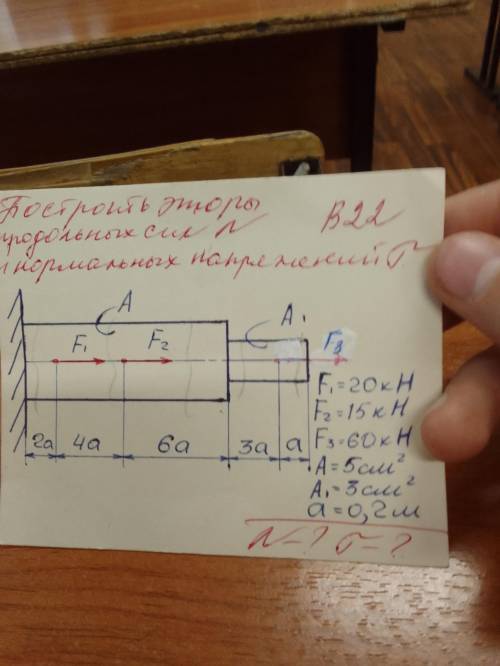 Построить эпюры
продольных сил N
и нормальных напряжений σ.
В22
A
A₁
F₁
F₂
F₃
2a 4a 6a 3a a
F₁=20кН
F₂=15кН
F₃=60кН
A=5см²
A₁=3см²
a=0,2м
N=? σ=?